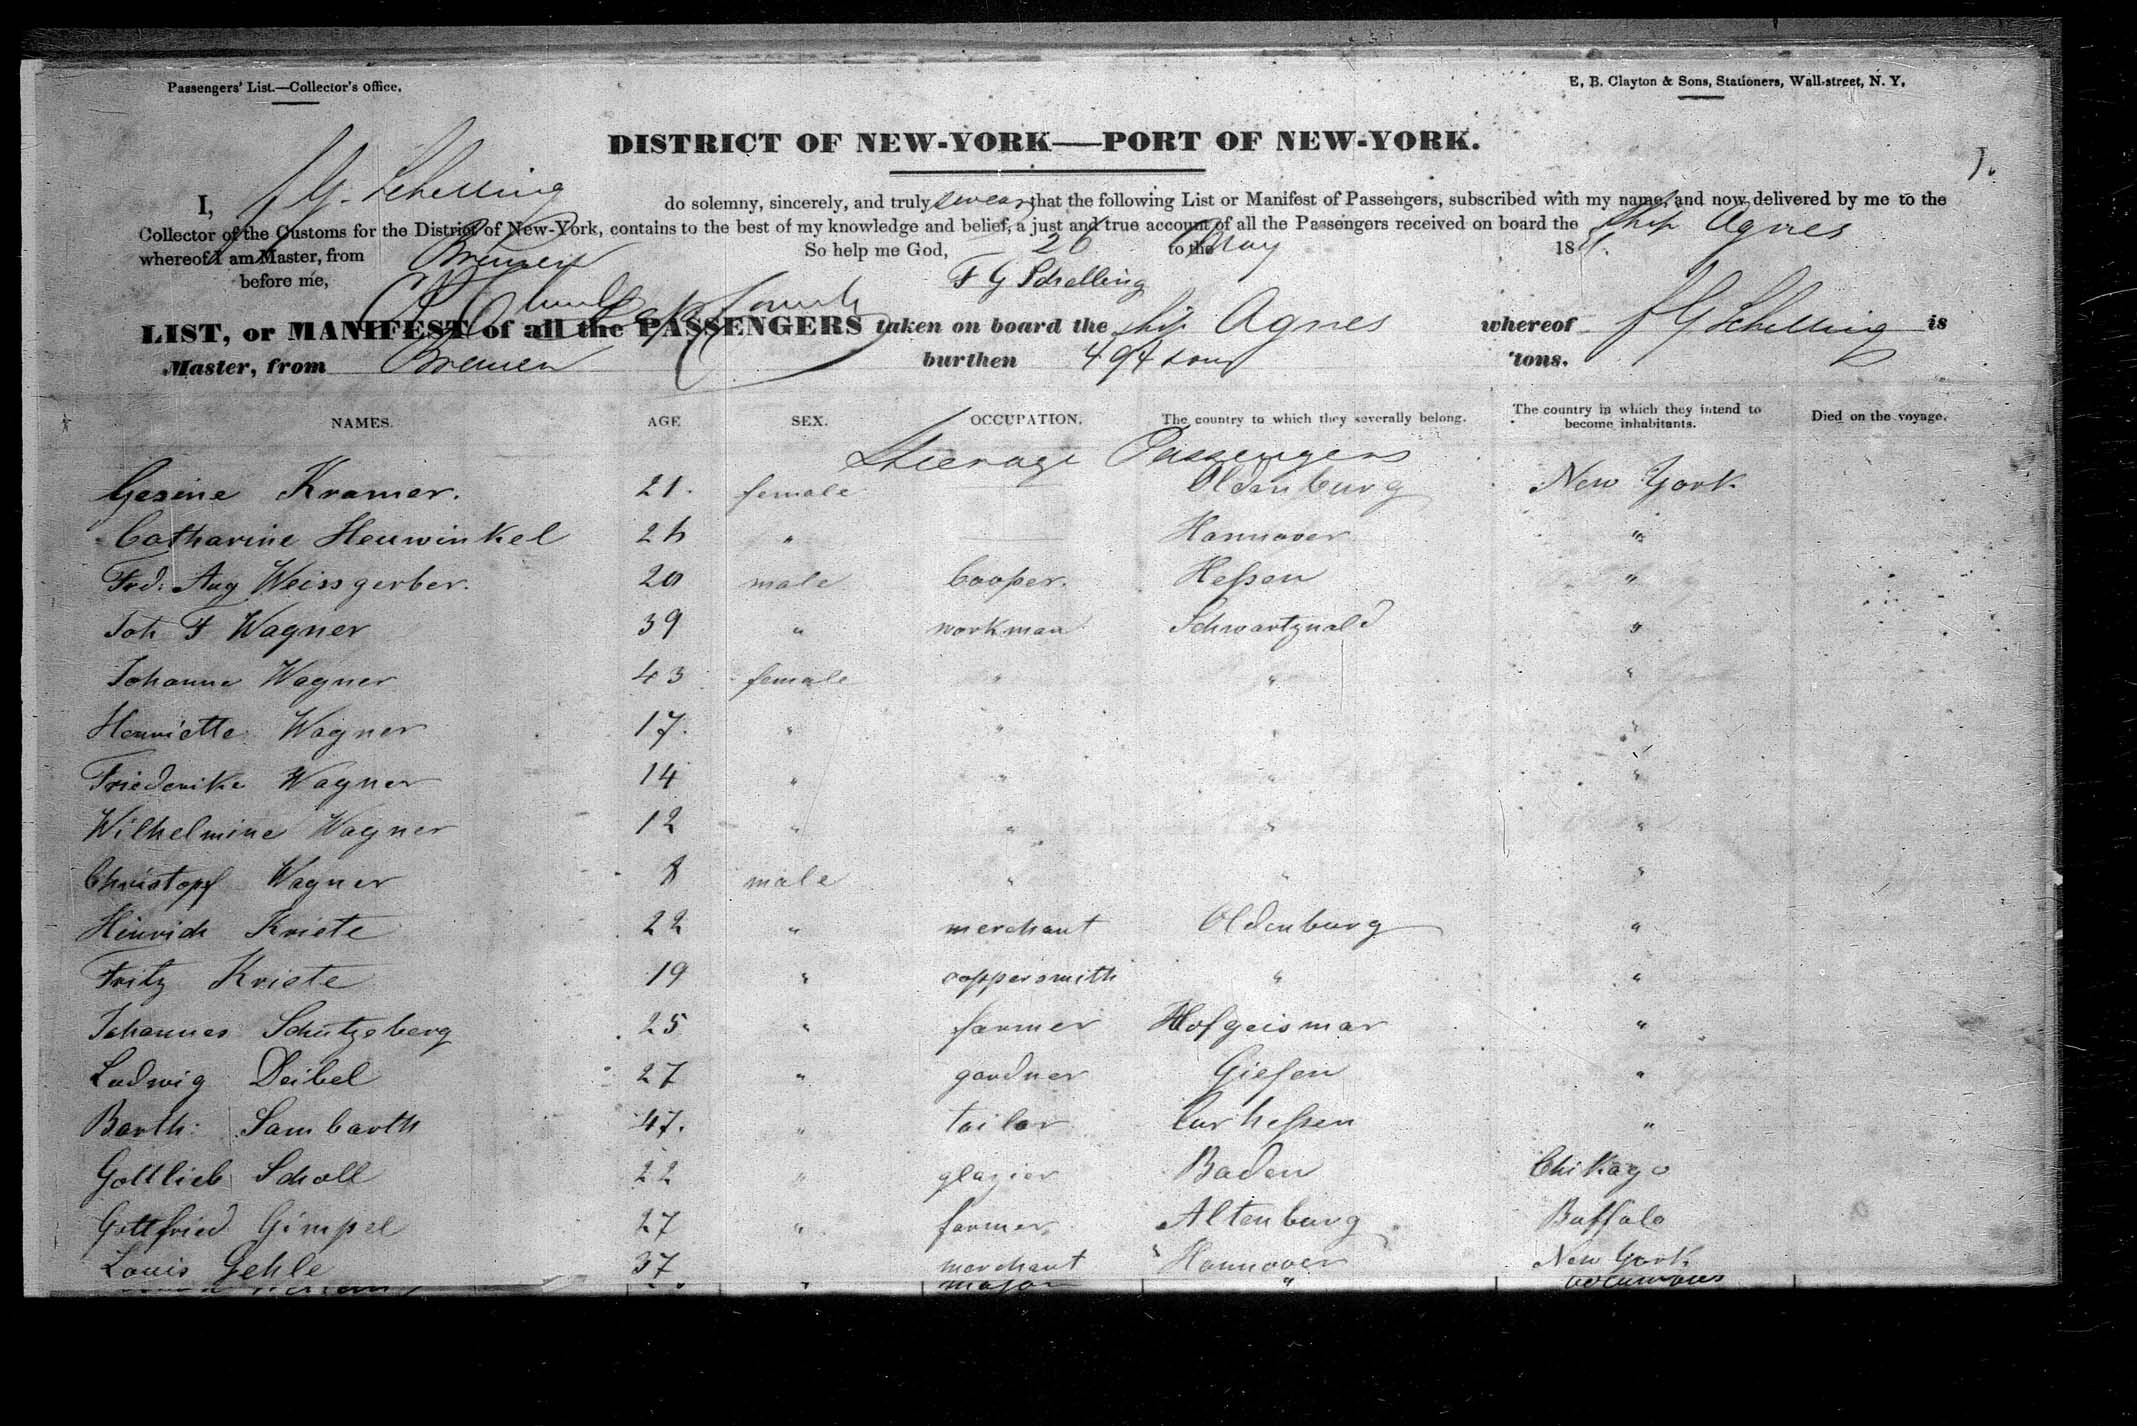 Passengers' List.—Collector's office, E, B. Clayton & Sons, Stationers, Wall-street, N. Y.
DISTRICT OF NEW-YORK—PORT OF NEW-YORK.
I, F G. Schelling do solemny, sincerely, and truly swear that the following List or Manifest of Passengers, subscribed with my name, and now delivered by me to the
Collector of the Customs for the District of New-York, contains to the best of my knowledge and belief, a just and true account of all the Passengers received on board the Ship Agnes
whereof I am Master, from Bremen So help me God, 26 to the May 18
before me, F G Schelling
LIST, or MANIFEST of all the PASSENGERS taken on board the ship Agnes whereof F G Schelling is
Master, from Bremen burthen 494 tons 'tons.
NAMES. AGE SEX. OCCUPATION. The country to which they severally belong. The country in which they intend to become inhabitants. Died on the voyage.
Steerage Passengers
Gesine Kramer. 21. female Oldenburg New York
Catharine Heuwinkel " Hannover "
Frd: Aug Weissgerber. 20 male Cooper. Heſsen "
Joh F Wagner 39 " workman Schwartzwald "
Johanne Wagner 43 female " " "
Henriette Wagner 17. " " " "
Friederike Wagner 14 " " " "
Wilhelmine Wagner 12 " " " "
Christopf Wagner 8 male " " "
Hinrich Kriete 22 " merchant Oldenburg "
Fritz Kriete 19 " coppersmith " "
Johannes Schützeberg 25 " farmer Hofgeismar "
Ludwig Deibel 27 " gardner Gieſen "
Barth: Sambarth 47. " tailor Curheſsen "
Gottlieb Scholl 22 " glazier Baden Chikago
Gottfried Gimpel 27 " farmer Altenburg Buffalo
Louis Gehle 37 merchant Hannover New York
" major "